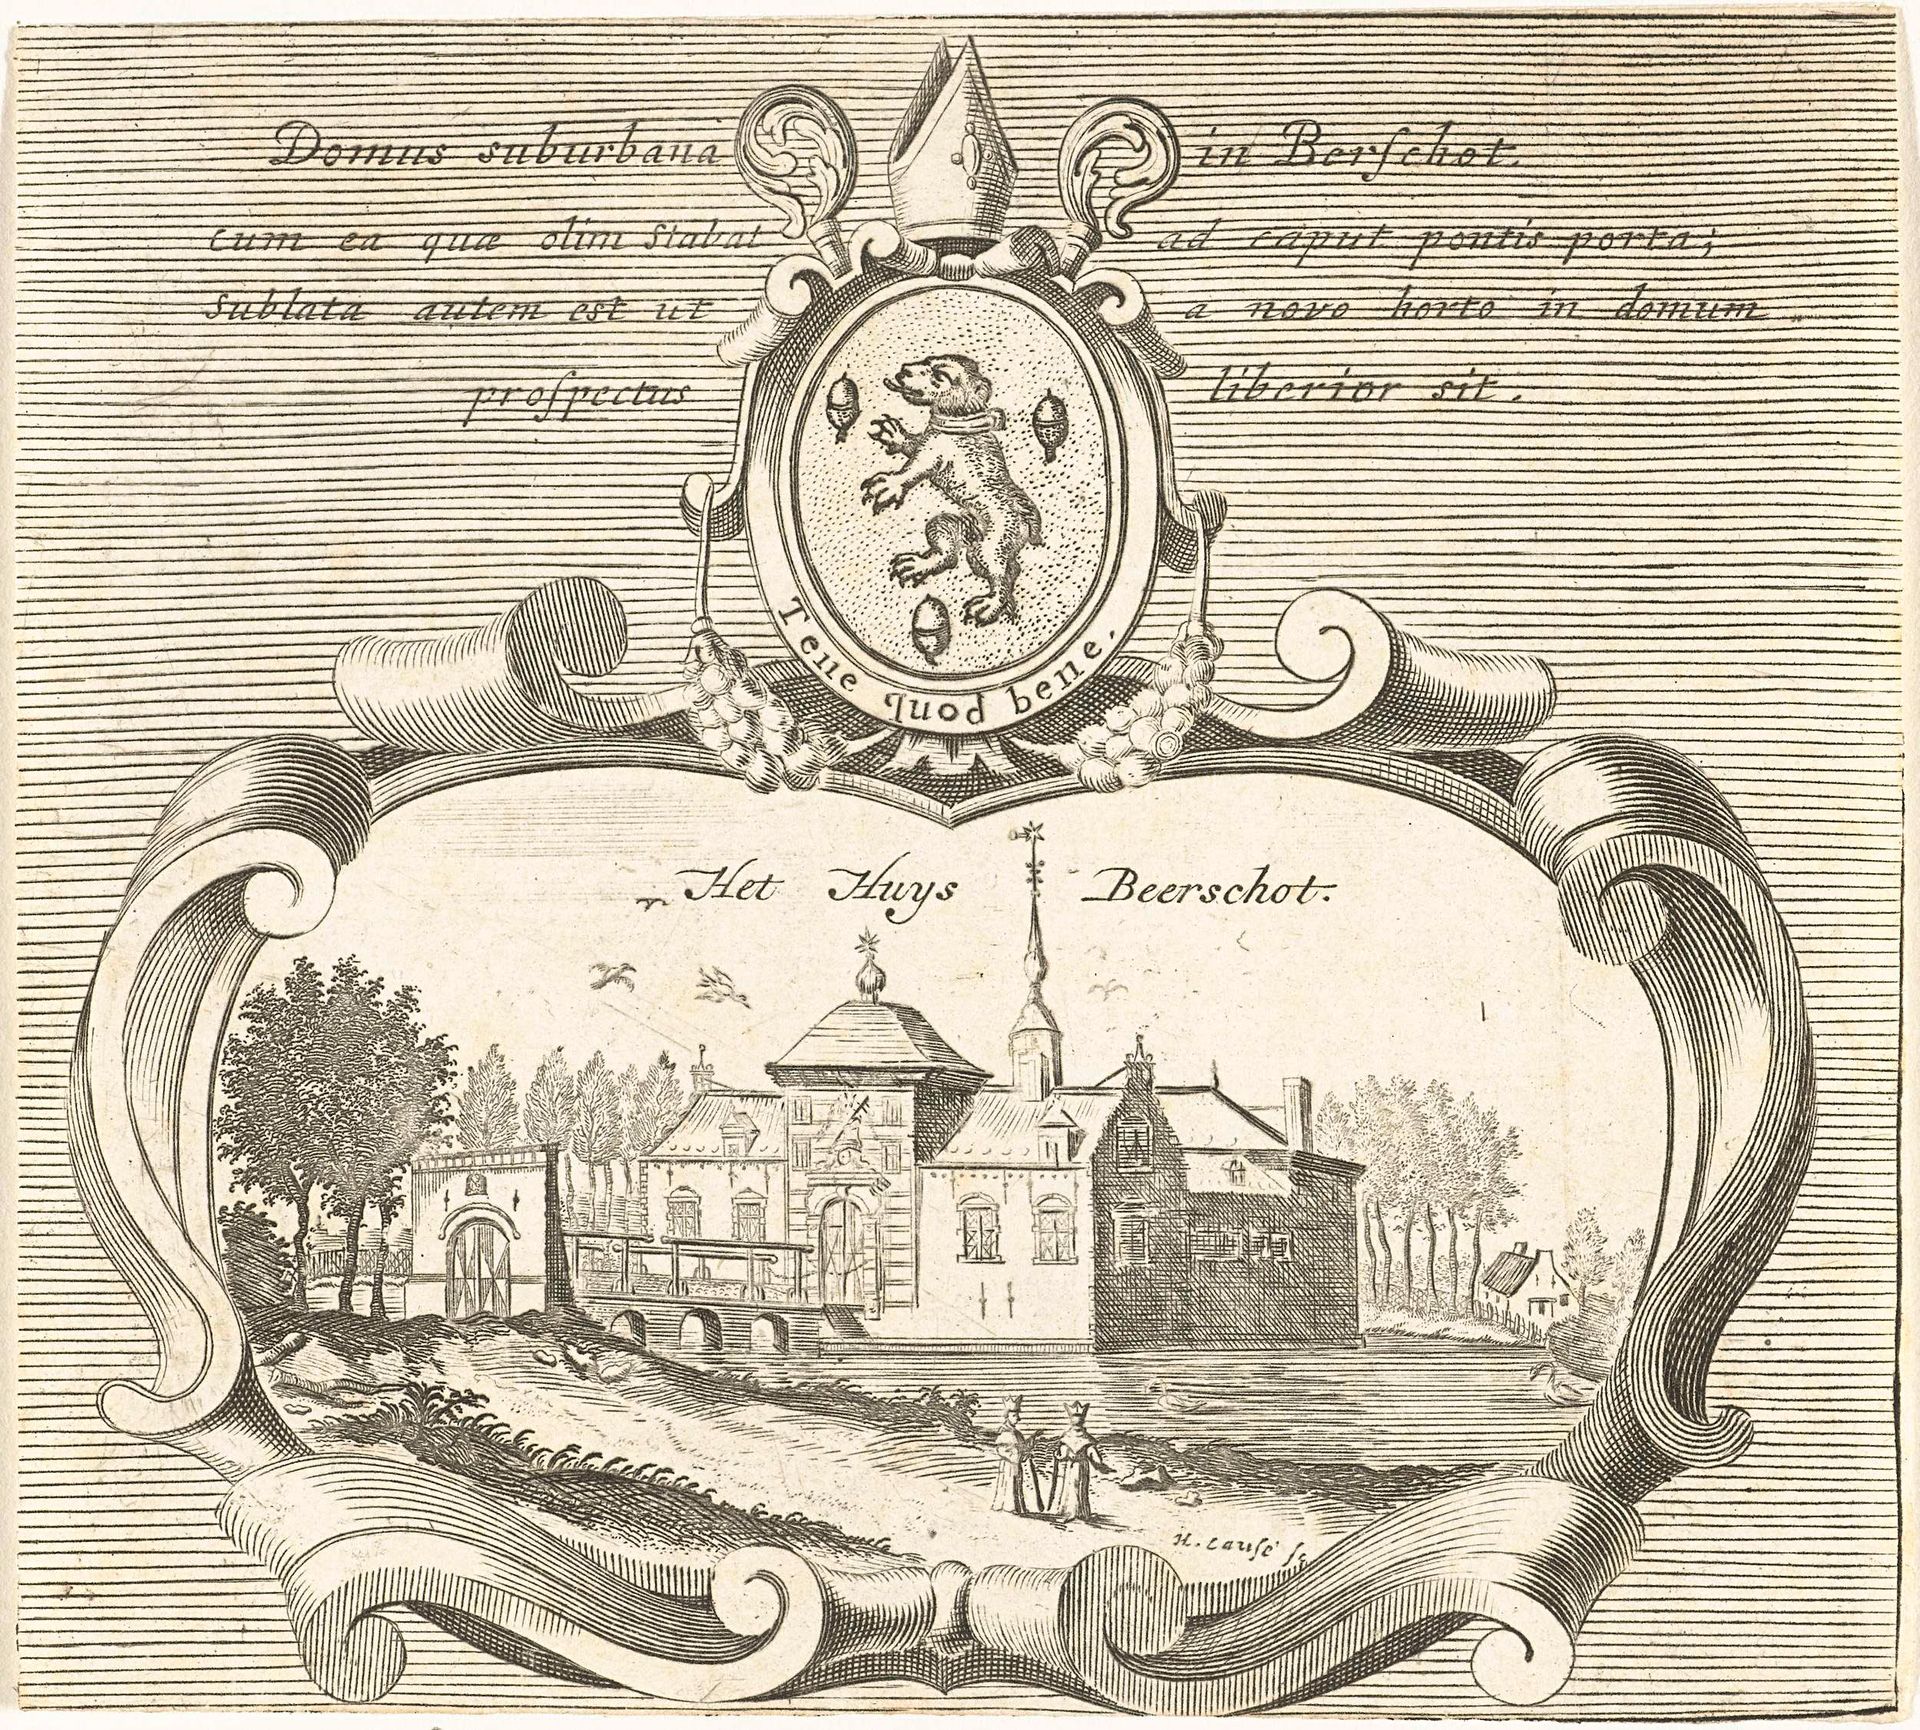 Domus suburbana in Berſchot.
cum ea quæ olim Stabat ad caput pontis porta;
Sublata autem est ut a novo horto in domum
proſpectus liberior sit.
Tene quod bene.
Het Huys Beerschot.
H. Cauſé ſc